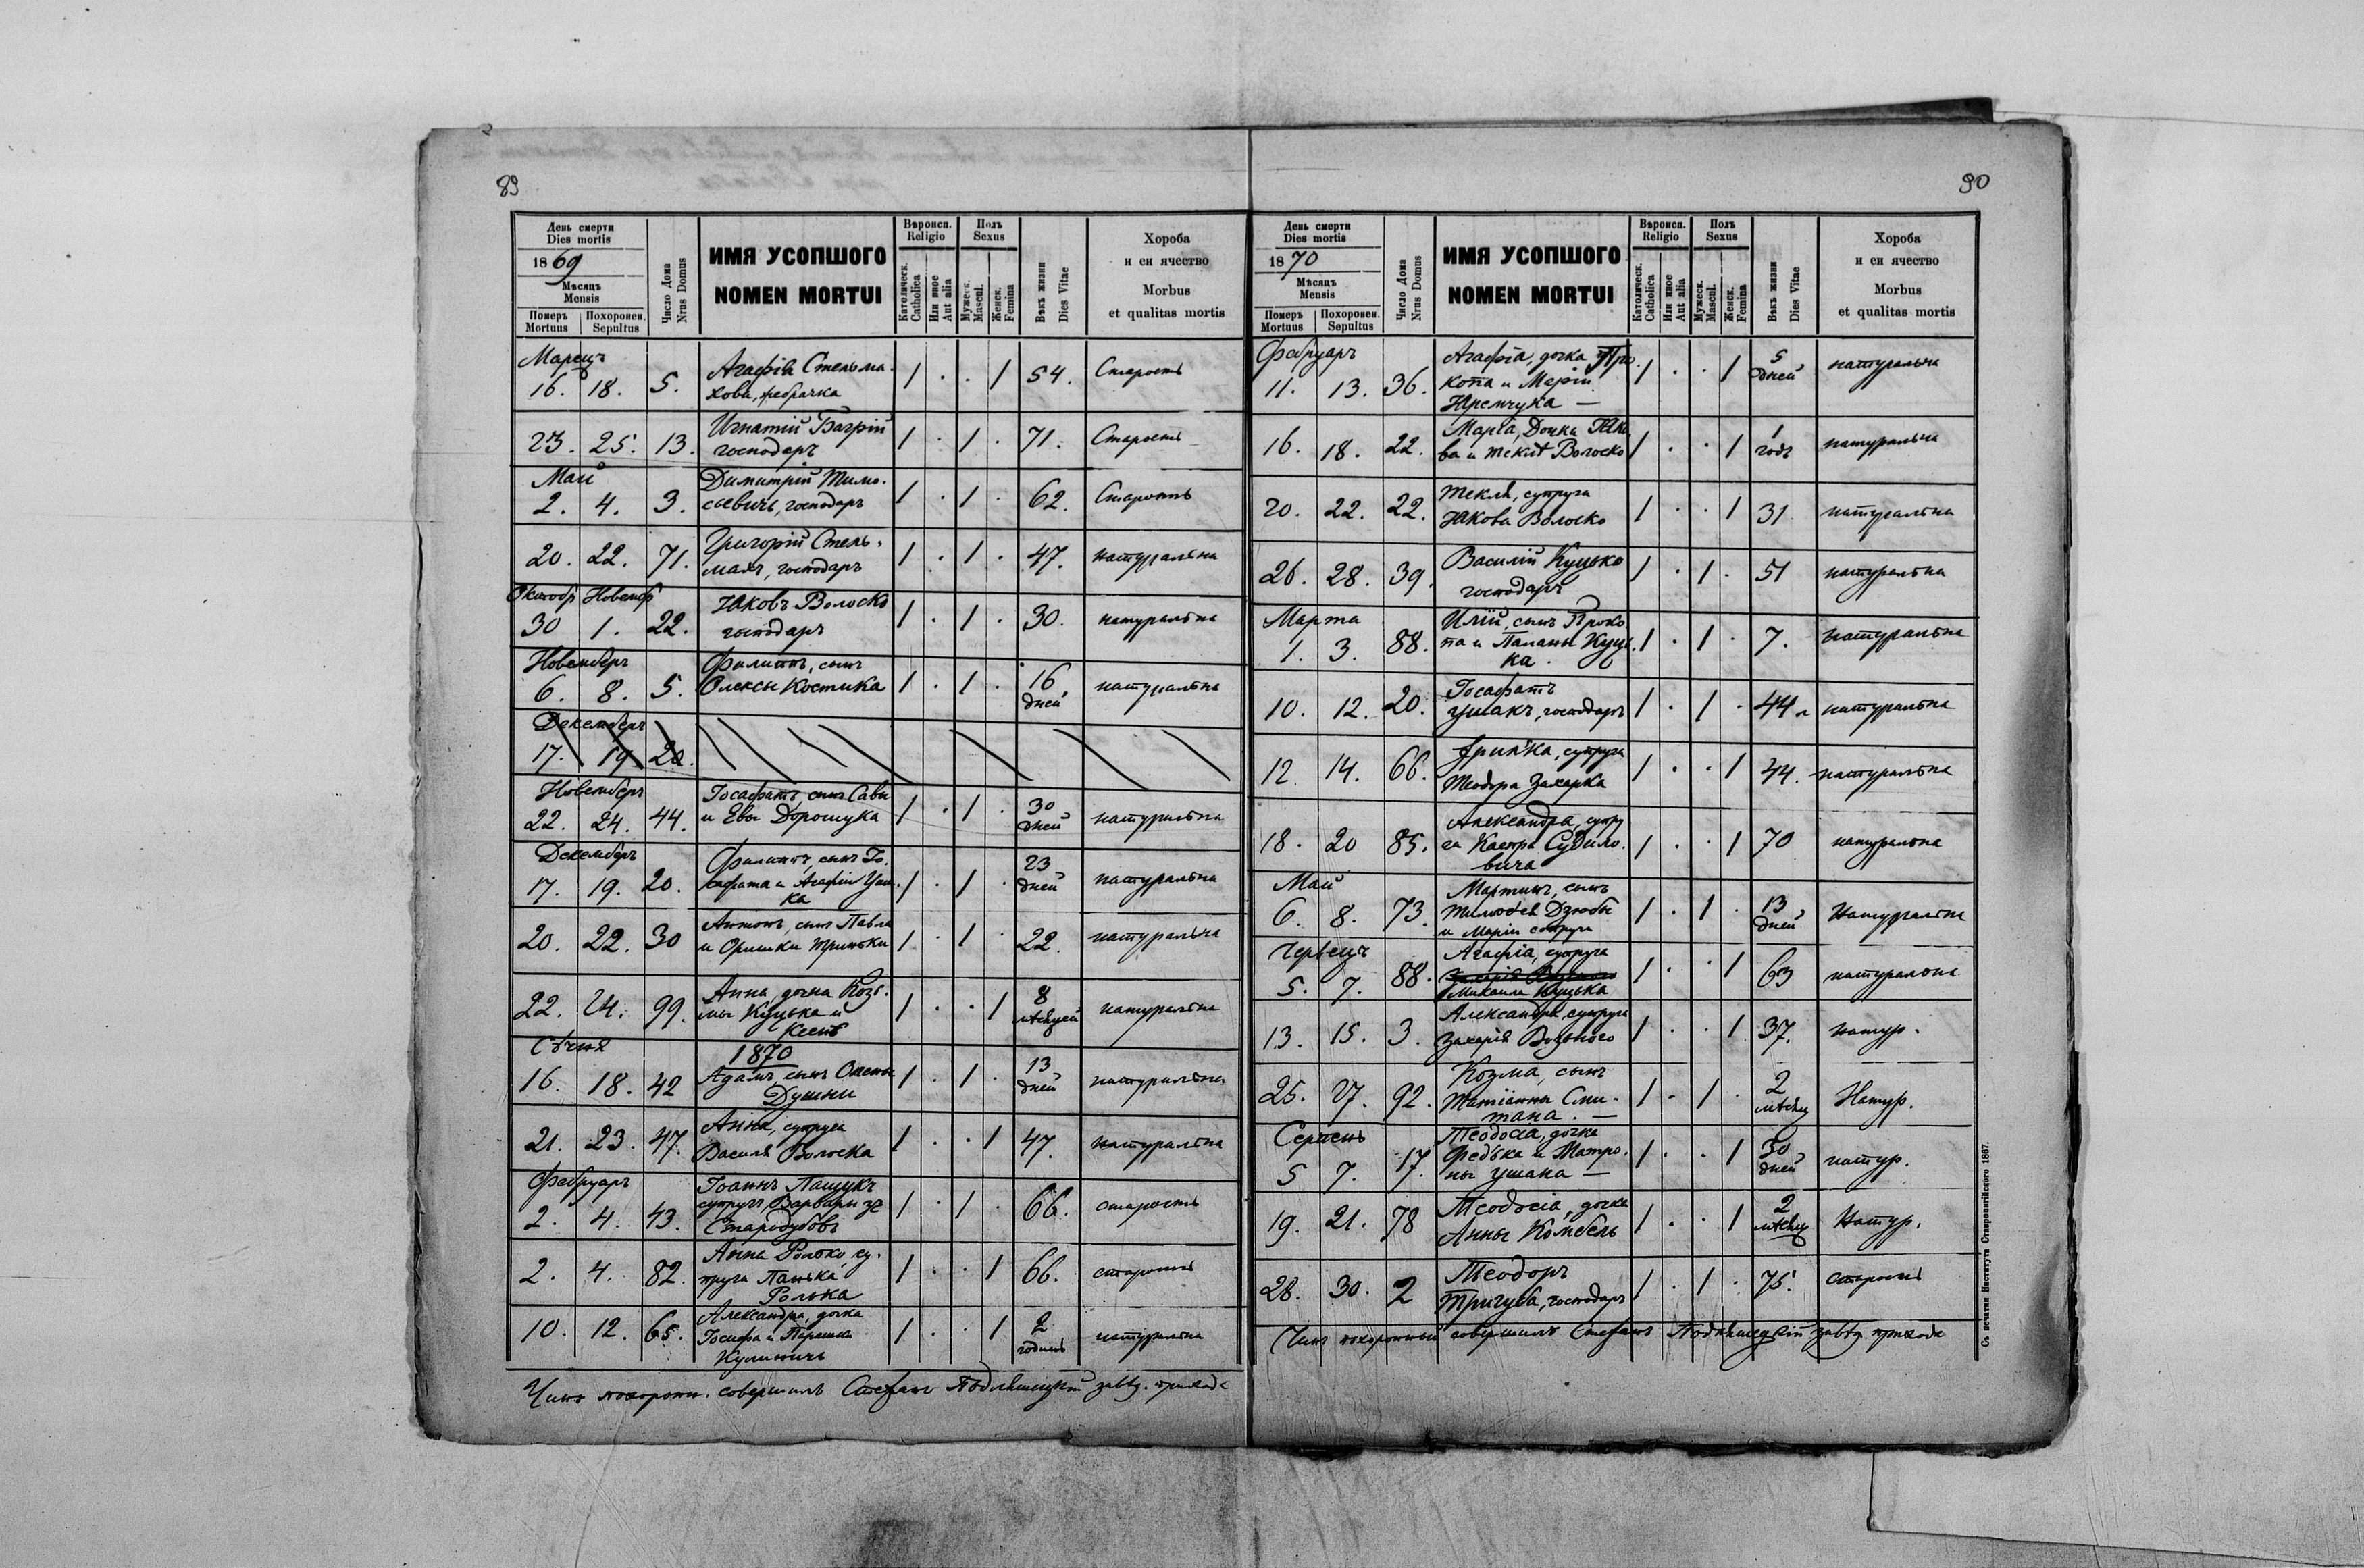 89
День смерти
Dies mortis
1869
Мѣсяцъ
Mensis
Померъ Похоронен.
Mortuus Sepultus
Число Дома
Nrus Domus
ИМЯ УСОПШОГО
NOMEN MORTUI
Вѣроисп.
Religio
Католическ.
Catholica
Или иное
Aut alia
Полъ
Sexus
Мужеск.
Mascul.
Женск.
Femina
Вѣкъ жизни
Dies Vitae
Хороба
и еи ячество
Morbus
et qualitas mortis
Марецъ
Агафія Стельма-
16. 18. 5. 1 . . 1 54. Старость
хова, жебрачка
Игнатій Багрій
23. 25. 13. 1 . 1 . 71. Старость
господарь
Май
Димитрій Тимо-
2. 4. 3. 1 . 1 . 62. Старость
сьевичь, господарь
Григорій Стель-
20. 22. 71. 1 . 1 . 47. натуральна
махъ, господарь
Октобр Новембр
Яковъ Волоско
30 1. 22. 1 . 1 . 30. натуральна
господарь
Новемберъ
Филиппъ, сынъ
6. 8. 5. Олексы Костика 1 . 1 . 16 дней натуральна
Декемберъ
17. 19 20.
Новемберъ
Іосафатъ, сынъ Савы
22. 24. 44. и Евы Дорошука 1 . 1 . 30 дней натуральна
Декемберъ
Филиппъ, сынъ Іо-
17. 19. 20. сафата и Агафіи Уша- 1 . 1 . 23 дней натуральна
ка
Антонъ, сынъ Павла
20. 22. 30 1 . 1 . 22. натуральна
и Оришки Триньки
Анна, дочка Козь-
22. 24. 99. мы Куцька и 1 . . 1 8 мѣсяцей натуральна
Ксенѣ
Сѣчня
1870
16. 18. 42 Адамъ, сынъ Олены 1 . 1 . 13 дней натуральна
Душни
Анна, супруга
21. 23. 47. 1 . . 1 47. натуральна
Василя Волоска
Фебруаръ
Іоаннъ Пащукъ
супругъ Варвары зъ
2. 4. 43. 1 . 1 . 66. старость
Стародубовъ
Анна Ролько, су-
2. 4. 82. пруга Панька 1 . . 1 66. старость
Ролька
Александра, дочка
10. 12. 65. Іосифа и Парашки 1 . . 1 2 годинъ натуральна
Кулиничъ
Чинъ похорони. совершилъ Стефанъ Подляшецкій завѣд. прихода
90
День смерти
Dies mortis
1870
Мѣсяцъ
Mensis
Померъ Похоронен.
Mortuus Sepultus
Число Дома
Nrus Domus
ИМЯ УСОПШОГО
NOMEN MORTUI
Вѣроисп.
Religio
Католическ.
Catholica
Или иное
Aut alia
Полъ
Sexus
Мужеск.
Mascul.
Женск.
Femina
Вѣкъ жизни
Dies Vitae
Хороба
и еи ячество
Morbus
et qualitas mortis
Фебруаръ
Агафія, дочка Про-
11. 13. 36. копа и Маріи 1 . . 1 5 дней натуральна
Яремчука —
Марія, Дочка Яко-
16. 18. 22. ва и Теклѣ Волоско 1 . . 1 1 годъ натуральна
Текля, супруга
20. 22. 22. Якова Волоско 1 . . 1 31 натуральна
Василій Куцько
26. 28. 39. 1 . 1 . 51 натуральна
господарь
Марта
Илій, сынъ Проко-
1. 3. 88. па и Паланы Куць- 1 . 1 . 7. натуральна
ка.
Іосафатъ
10. 12. 20. Ушакъ, господарь 1 . 1 . 44 л натуральна
Гринька, супруга
12 14. 66. Теодора Захарка 1 . . 1 44. натуральна
Александра, супру-
18. 20 85. га Каспра Судило- 1 . . 1 70 натуральна
вича
Май
Мартинъ, сынъ
6. 8. 73. Тимофея Дзюбы 1 . 1 . 13 дней Натуральна
и Маріи супруги
Червецъ
Агафія, супруга
5. 7. 88. 1 . . 1 63 натуральна
Михаила Куцька
Александра, супруга
13. 15. 3. Захарія Возьного 1 . . 1 37. натур.
Козма, сынъ
25. 27. 92. Татіанны Сми- 1 . 1 . 2 мѣсяц Натур.
тана. —
Серпень
Теодосія, дочка
5 7. 17. Федька и Матро- 1 . . 1 30 дней натур.
ны Ушака —
Теодосія, дочка
19. 21. 78 Анны Комбель 1 . . 1 2 мѣсяц Натур.
Теодоръ
28. 30. 2 Тригуба, господарь 1 . 1 . 75. старость
Чинъ похоронный совершилъ Стефанъ Подляшецкій завѣд. прихода
Съ печатни Института Ставропигійского 1867.